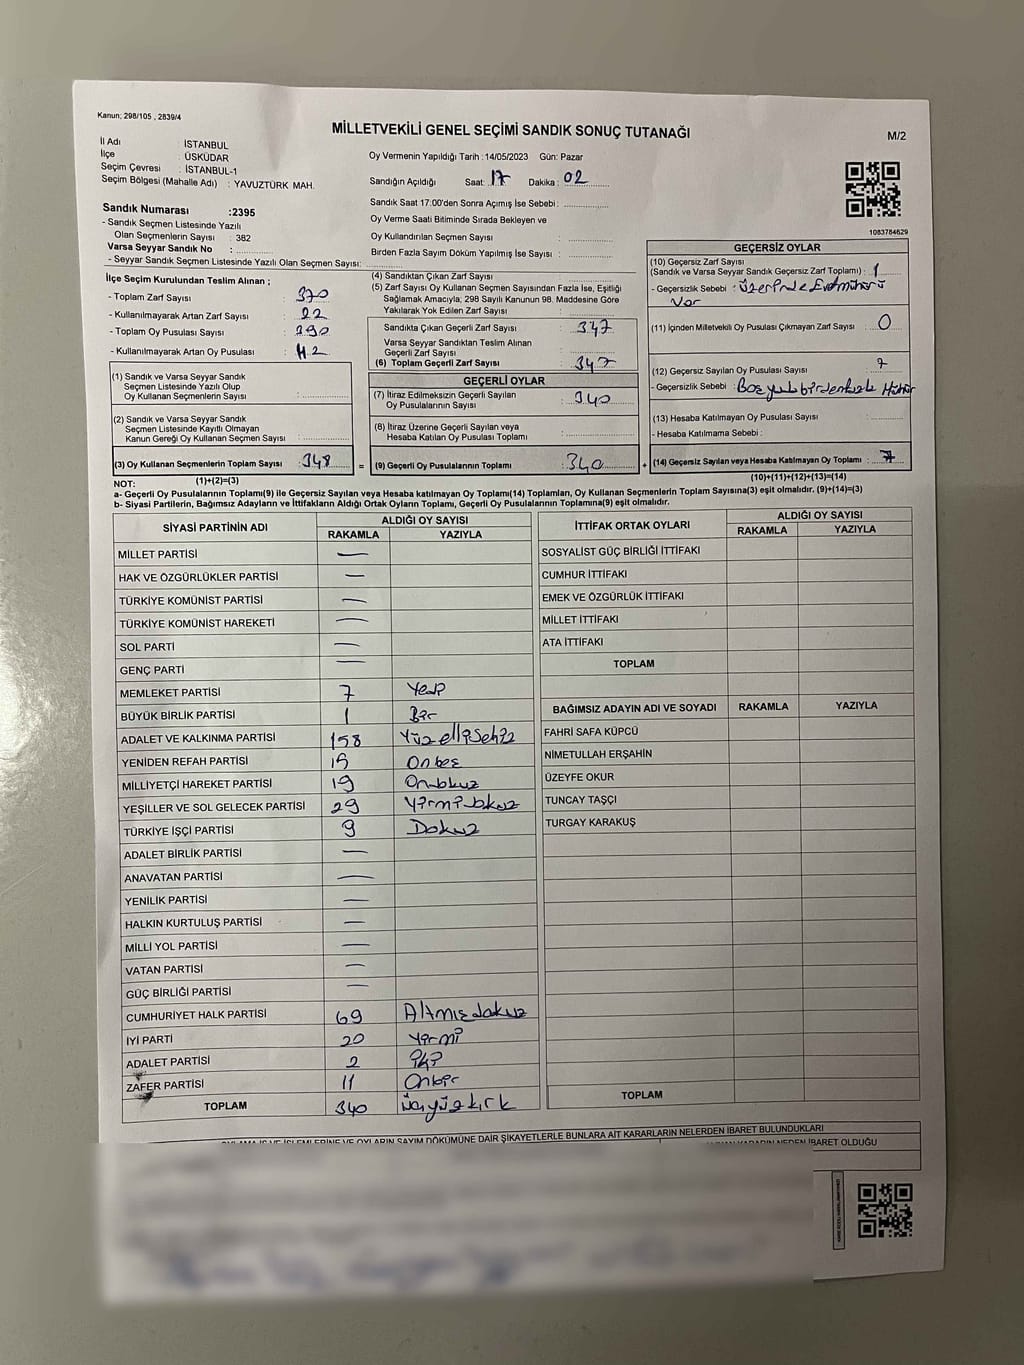 Kanun; 298/105 , 2839/4
MİLLETVEKİLİ GENEL SEÇİMİ SANDIK SONUÇ TUTANAĞI
M/2
İl Adı : İSTANBUL
İlçe : ÜSKÜDAR
Seçim Çevresi : İSTANBUL-1
Seçim Bölgesi (Mahalle Adı) : YAVUZTÜRK MAH.
Sandık Numarası :2395
- Sandık Seçmen Listesinde Yazılı
Olan Seçmenlerin Sayısı : 382
Varsa Seyyar Sandık No :
- Seyyar Sandık Seçmen Listesinde Yazılı Olan Seçmen Sayısı:
Oy Vermenin Yapıldığı Tarih :14/05/2023 Gün: Pazar
Sandığın Açıldığı Saat: 17 Dakika : 02
Sandık Saat 17:00'den Sonra Açımış İse Sebebi :
Oy Verme Saati Bitiminde Sırada Bekleyen ve
Oy Kullandırılan Seçmen Sayısı :
Birden Fazla Sayım Döküm Yapılmış İse Sayısı :
1083784629
İlçe Seçim Kurulundan Teslim Alınan ;
- Toplam Zarf Sayısı : 370
- Kullanılmayarak Artan Zarf Sayısı : 22
- Toplam Oy Pusulası Sayısı : 390
- Kullanılmayarak Artan Oy Pusulası : 42
(1) Sandık ve Varsa Seyyar Sandık
Seçmen Listesinde Yazılı Olup
Oy Kullanan Seçmenlerin Sayısı :
(2) Sandık ve Varsa Seyyar Sandık
Seçmen Listesinde Kayıtlı Olmayan
Kanun Gereği Oy Kullanan Seçmen Sayısı :
(3) Oy Kullanan Seçmenlerin Toplam Sayısı : 348
(1)+(2)=(3)
(4) Sandıktan Çıkan Zarf Sayısı :
(5) Zarf Sayısı Oy Kullanan Seçmen Sayısından Fazla İse, Eşitliği
Sağlamak Amacıyla; 298 Sayılı Kanunun 98. Maddesine Göre
Yakılarak Yok Edilen Zarf Sayısı :
Sandıkta Çıkan Geçerli Zarf Sayısı : 347
Varsa Seyyar Sandıktan Teslim Alınan
Geçerli Zarf Sayısı :
(6) Toplam Geçerli Zarf Sayısı : 347
GEÇERLİ OYLAR
(7) İtiraz Edilmeksizin Geçerli Sayılan
Oy Pusulalarının Sayısı : 340
(8) İtiraz Üzerine Geçerli Sayılan veya
Hesaba Katılan Oy Pusulası Toplamı :
= (9) Geçerli Oy Pusulalarının Toplamı : 340
GEÇERSİZ OYLAR
(10) Geçersiz Zarf Sayısı
(Sandık ve Varsa Seyyar Sandık Geçersiz Zarf Toplamı) : 1
- Geçersizlik Sebebi : Üzerinde Evet mührü
var
(11) İçinden Milletvekili Oy Pusulası Çıkmayan Zarf Sayısı : 0
(12) Geçersiz Sayılan Oy Pusulası Sayısı : 7
- Geçersizlik Sebebi : Boş
(13) Hesaba Katılmayan Oy Pusulası Sayısı :
- Hesaba Katılmama Sebebi :
+ (14) Geçersiz Sayılan veya Hesaba Katılmayan Oy Toplamı : 7
(10)+(11)+(12)+(13)=(14)
NOT:
a- Geçerli Oy Pusulalarının Toplamı(9) ile Geçersiz Sayılan veya Hesaba katılmayan Oy Toplamı(14) Toplamları, Oy Kullanan Seçmenlerin Toplam Sayısına(3) eşit olmalıdır. (9)+(14)=(3)
b- Siyasi Partilerin, Bağımsız Adayların ve İttifakların Aldığı Ortak Oyların Toplamı, Geçerli Oy Pusulalarının Toplamına(9) eşit olmalıdır.
SİYASİ PARTİNİN ADI ALDIĞI OY SAYISI
RAKAMLA YAZIYLA
MİLLET PARTİSİ —
HAK VE ÖZGÜRLÜKLER PARTİSİ —
TÜRKİYE KOMÜNİST PARTİSİ —
TÜRKİYE KOMÜNİST HAREKETİ —
SOL PARTİ —
GENÇ PARTİ —
MEMLEKET PARTİSİ 7 Yedi
BÜYÜK BİRLİK PARTİSİ 1 Bir
ADALET VE KALKINMA PARTİSİ 158 Yüzellisekiz
YENİDEN REFAH PARTİSİ 15 Onbeş
MİLLİYETÇİ HAREKET PARTİSİ 19 Ondokuz
YEŞİLLER VE SOL GELECEK PARTİSİ 29 Yirmidokuz
TÜRKİYE İŞÇİ PARTİSİ 9 Dokuz
ADALET BİRLİK PARTİSİ —
ANAVATAN PARTİSİ —
YENİLİK PARTİSİ —
HALKIN KURTULUŞ PARTİSİ —
MİLLİ YOL PARTİSİ —
VATAN PARTİSİ —
GÜÇ BİRLİĞİ PARTİSİ —
CUMHURİYET HALK PARTİSİ 69 Altmışdokuz
İYİ PARTİ 20 Yirmi
ADALET PARTİSİ 2 İki
ZAFER PARTİSİ 11 Onbir
TOPLAM 340 Üçyüzkırk
İTTİFAK ORTAK OYLARI ALDIĞI OY SAYISI
RAKAMLA YAZIYLA
SOSYALİST GÜÇ BİRLİĞİ İTTİFAKI
CUMHUR İTTİFAKI
EMEK VE ÖZGÜRLÜK İTTİFAKI
MİLLET İTTİFAKI
ATA İTTİFAKI
TOPLAM
BAĞIMSIZ ADAYIN ADI VE SOYADI RAKAMLA YAZIYLA
FAHRİ SAFA KÜPCÜ
NİMETULLAH ERŞAHİN
ÜZEYFE OKUR
TUNCAY TAŞÇI
TURGAY KARAKUŞ
TOPLAM
OYLAMA İŞ VE İŞLEMLERİNE VE OYLARIN SAYIM DÖKÜMÜNE DAİR ŞİKAYETLERLE BUNLARA AİT KARARLARIN NELERDEN İBARET BULUNDUKLARI
KARARIN NEDEN İBARET OLDUĞU